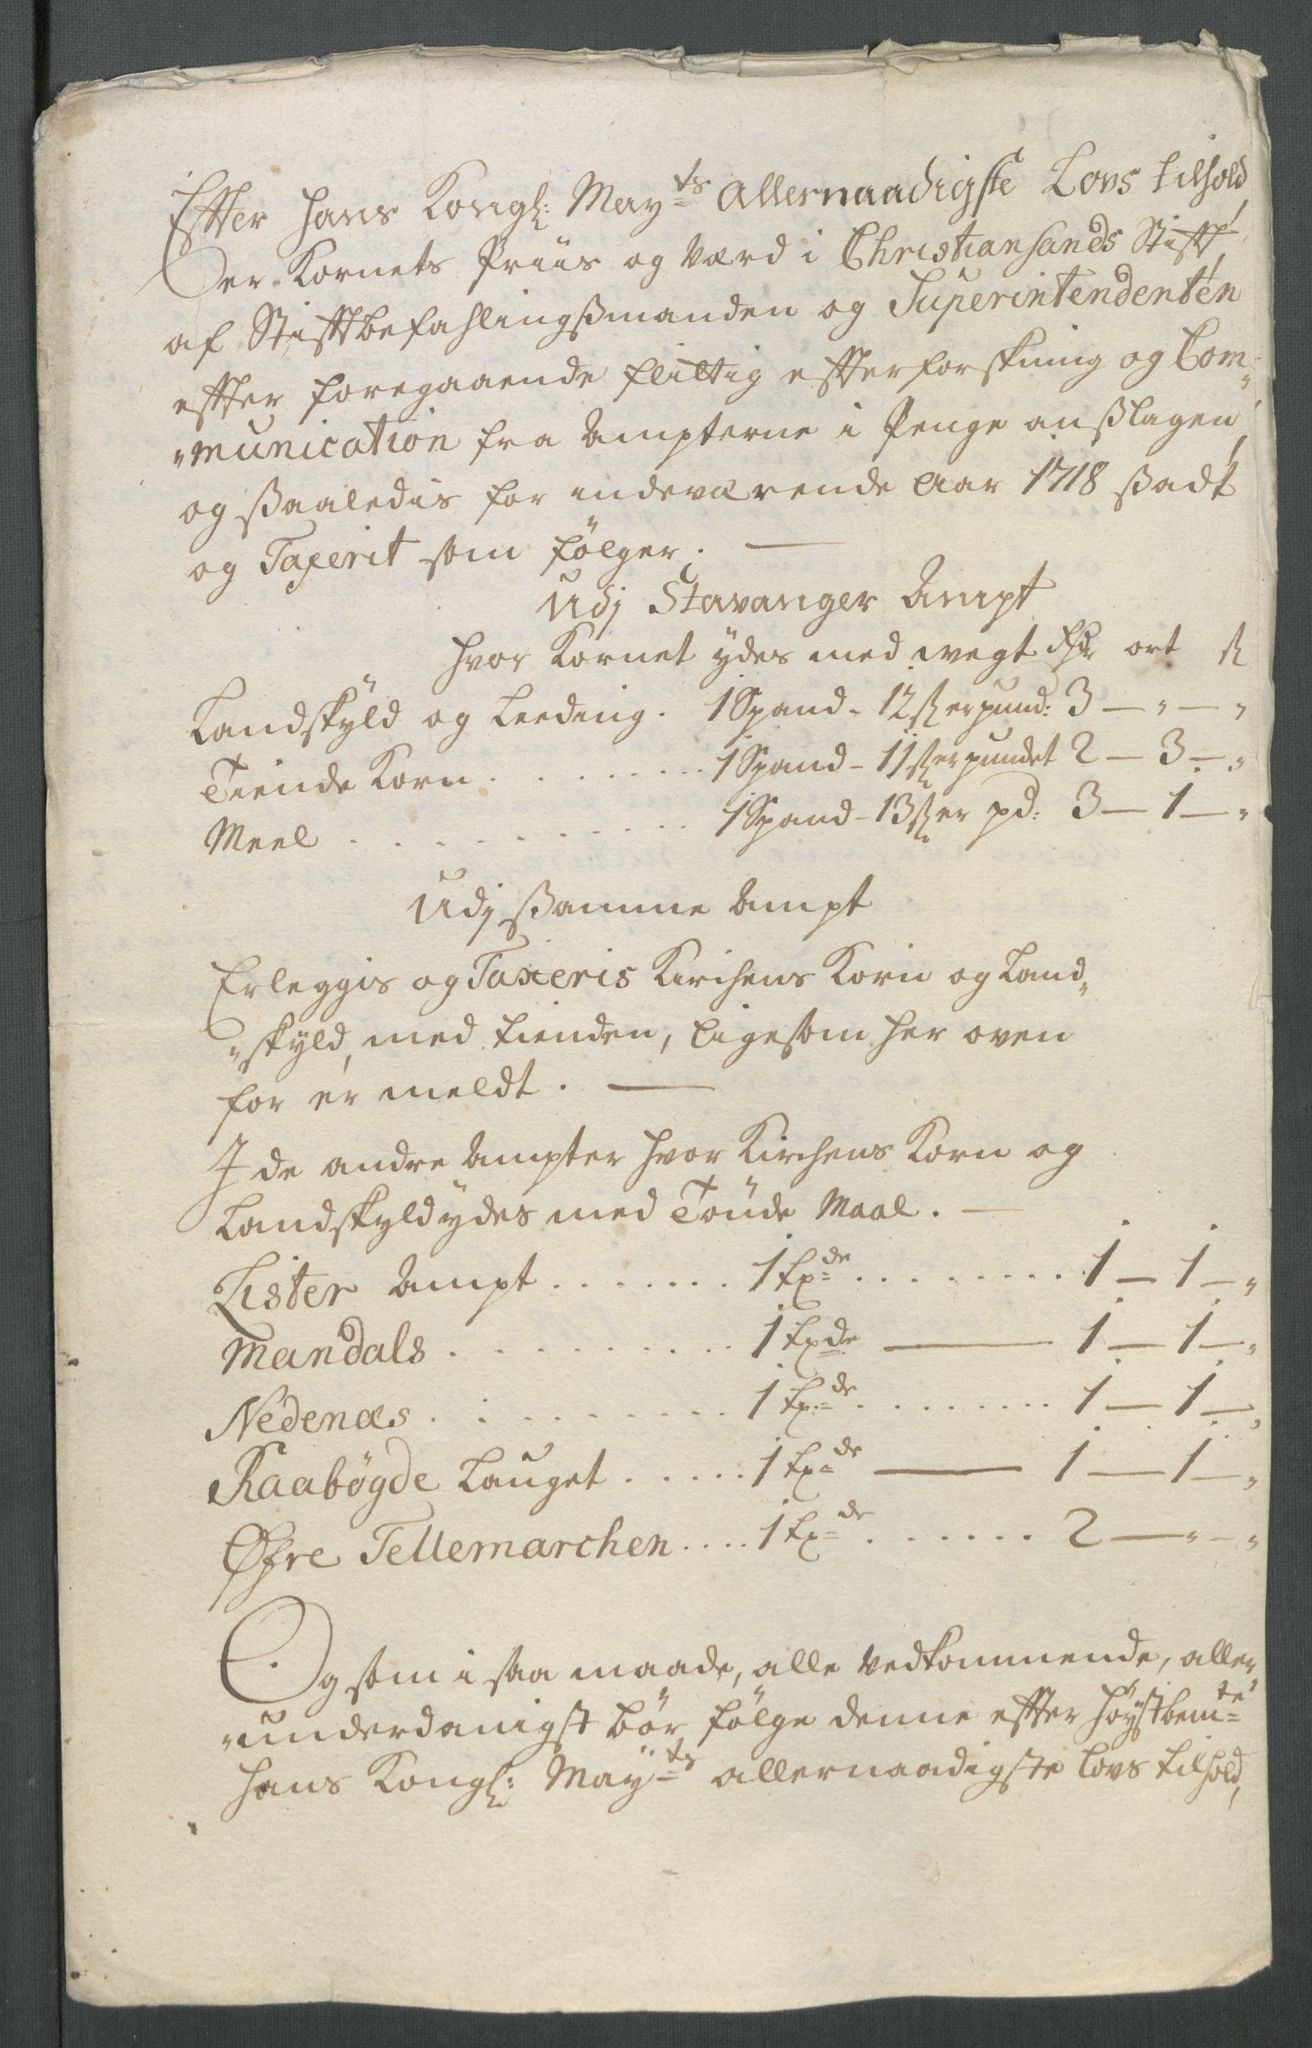 Efter hans Kongl: May^ts Allernaadigste Lovs tilhold,
er Kornets Priis og Værd i Christiansands Stift,
af Stiftbefahlingßmanden og Superintendenten
efter foregaaende flittig efterforskning og Com-
"munication fra Ampterne i Penge anßlagen,
og ßaaledis for indeværende Aar 1718 ßadt
og Taxerit som fölger. —
Udj Stavanger Ampt
hvor Kornet ydes med wegt Rdr ort ß
Landskÿld og Leeding. 1 Spand - 12 ß er pund: 3 — " — "
Tiende Korn . . . . . . . 1 Spand - 11 ß er pundet 2 — 3 — "
Meel . . . . . . . . . . 1 Spand - 13 ß er pd: 3 — 1 — "
Udj ßamme Ampt
Erleggis og Taxeris Kirchens Korn og Land-
"skÿld, med tienden, ligesom her oven
for er meldt. —
I de andre Ampter hvor Kirchens Korn og
Landskyld ydes med Tönde Maal. —
Lister Ampt . . . . . . . 1 tx^de . . . . . . . . . 1 — 1 — "
Mandals . . . . . . . . . . 1 txde — 1 — 1 — "
Nedenæs . . . . . . . . . . 1 tx^de . . . . . . . . . 1 — 1 — "
Raabögde Lauget . . . . . 1 tx^de — 1 — 1 — "
Øfre Tellemarchen . . . . 1 tx^de . . . . . . . 2 — " — "
Og som i saa maade, alle vedkommende, aller-
"underdanigst bör fölge denne efter höÿstbem^te
hans Kongl: Maÿ^ts allernaadigste lovs tilhold,